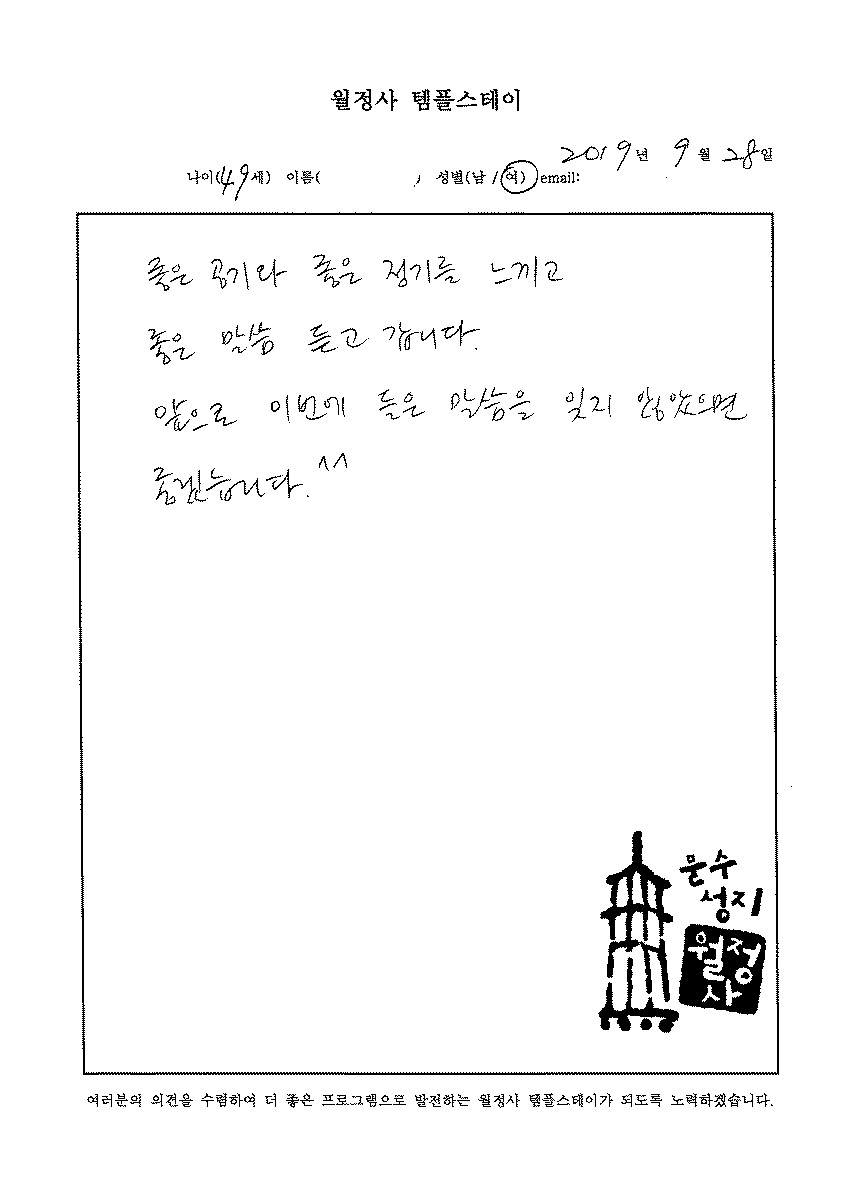 월정사 템플스테이
2019년 9월 28일
나이(49세) 이름( ) 성별(남/여) email:
좋은 공기와 좋은 정기를 느끼고
좋은 말씀 듣고 갑니다.
앞으로 이번에 들은 말씀을 잊지 않았으면
좋겠습니다. ^^
문수
성지
월정
사
여러분의 의견을 수렴하여 더 좋은 프로그램으로 발전하는 월정사 템플스테이가 되도록 노력하겠습니다.